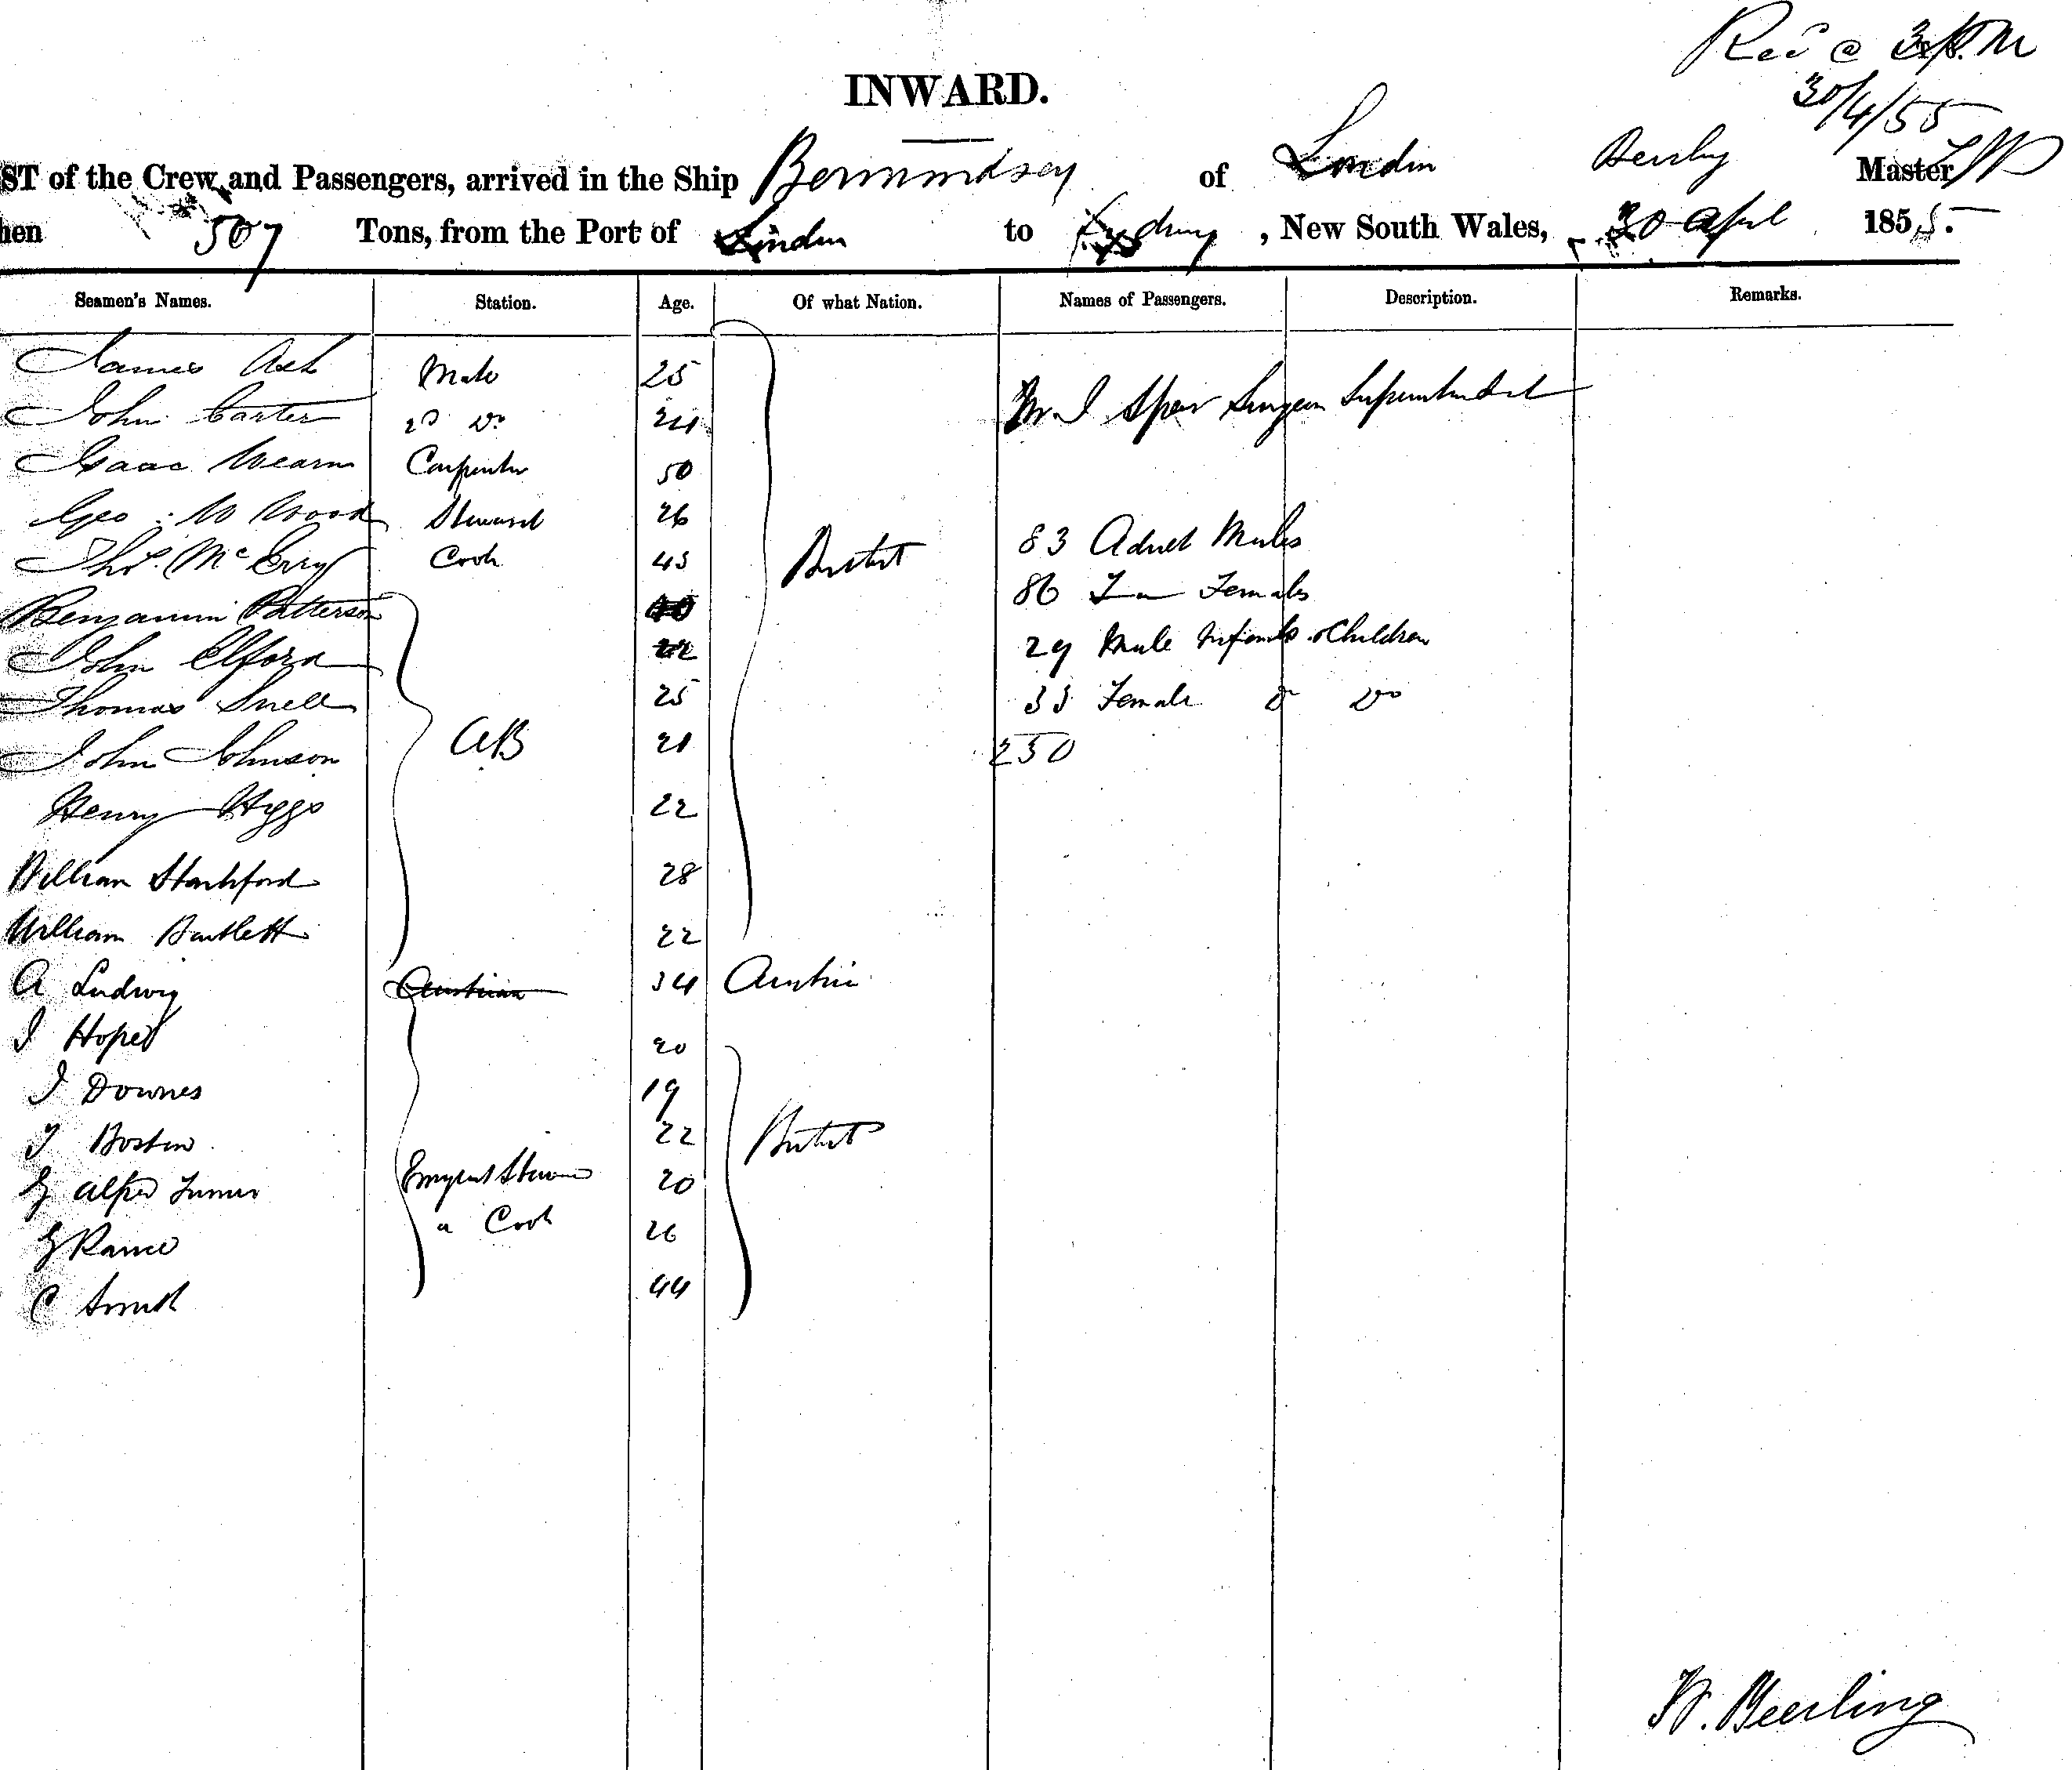 Recd @ 3 P.M
30/4/55
INWARD.
ST of the Crew, and Passengers, arrived in the Ship Bermondsey of London Master
hen 507 Tons, from the Port of London to Sydney, New South Wales, 30 April 1855.
Seamen's Names. Station. Age. Of what Nation. Names of Passengers. Description. Remarks.
James Ash Mate 25
John Carter 2d Do 24 Mr J Spear Surgeon Superintendent
Isaac Mearn Carpenter 50
Geo: W Wood Steward 26
Thos. McErry Cook 43 British 83 Adult Males
Benjamin Patterson 86 Do Females
John Elford 22 29 Male Infants & Children
Thomas Snell 25 33 Female Do Do
John Johnson AB 21 230
Henry Higgs 22
William Stachford 28
William Bartlett 22
A Ludwig Austrian 34 Austria
J Hoper 20
J Downes 19
J Boston 22 British
G Alfred Turner Emigrant 20
Cook 26
G Rance
C Smith 44
W. Beerling